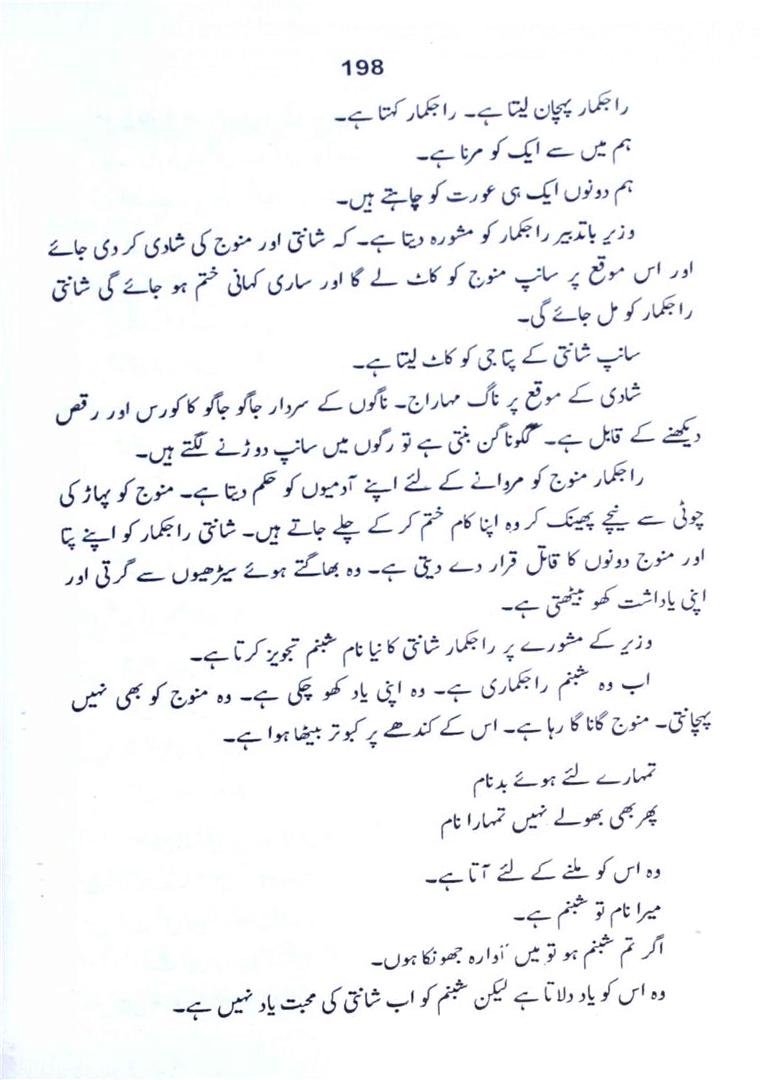 198
راجکمار پہچان لیتا ہے۔ راجکمار کہتا ہے۔
ہم میں سے ایک کو مرنا ہے۔
ہم دونوں ایک ہی عورت کو چاہتے ہیں۔
وزیر باتدبیر راجکمار کو مشورہ دیتا ہے۔ کہ شانتی اور منوج کی شادی کر دی جائے
اور اس موقع پر سانپ منوج کو کاٹ لے گا اور ساری کہانی ختم ہو جائے گی شانتی
راجکمار کو مل جائے گی۔
سانپ شانتی کے پتا جی کو کاٹ لیتا ہے۔
شادی کے موقع پر ناگ مہاراج۔ ناگوں کے سردار جاگو جاگو کا کورس اور رقص
دیکھنے کے قابل ہے۔ ککو ناگن بنتی ہے تو رگوں میں سانپ دوڑنے لگتے ہیں۔
راجکمار منوج کو مروانے کے لئے اپنے آدمیوں کو حکم دیتا ہے۔ منوج کو پہاڑ کی
چوٹی سے نیچے پھینک کر وہ اپنا کام ختم کر کے چلے جاتے ہیں۔ شانتی راجکمار کو اپنے پتا
اور منوج دونوں کا قاتل قرار دے دیتی ہے۔ وہ بھاگتے ہوئے سیڑھیوں سے گرتی اور
اپنی یاداشت کھو بیٹھتی ہے۔
وزیر کے مشورے پر راجکمار شانتی کا نیا نام شبنم تجویز کرتا ہے۔
اب وہ شبنم راجکماری ہے۔ وہ اپنی یاد کھو چکی ہے۔ وہ منوج کو بھی نہیں
پہچانتی۔ منوج گانا گا رہا ہے۔ اس کے کندھے پر کبوتر بیٹھا ہوا ہے۔
تمہارے لئے ہوئے بدنام
پھر بھی بھولے نہیں تمہارا نام
وہ اس کو ملنے کے لئے آتا ہے۔
میرا نام تو شبنم ہے۔
اگر تم شبنم ہو تو میں آوارہ جھونکا ہوں۔
وہ اس کو یاد دلاتا ہے لیکن شبنم کو اب شانتی کی محبت یاد نہیں ہے۔